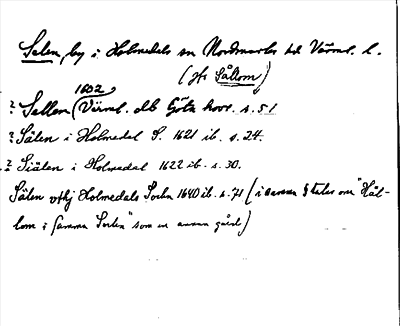 Salen, by i Holmedals sn Nordmarks hd Värml. l.
(jfr Såltom)
1602
? Sallen (Värml. db Götz hovr. s. 51
? Sälen i Holmedal S. 1621 ib. s. 24.
? Siälen i Holmedal 1622 ib. s. 30.
Sälen vthj Holmedals Sochn 1640 ib. s. 71 (i samma § talas om "Hål-
lom i samma Sochn" som en annan gård)